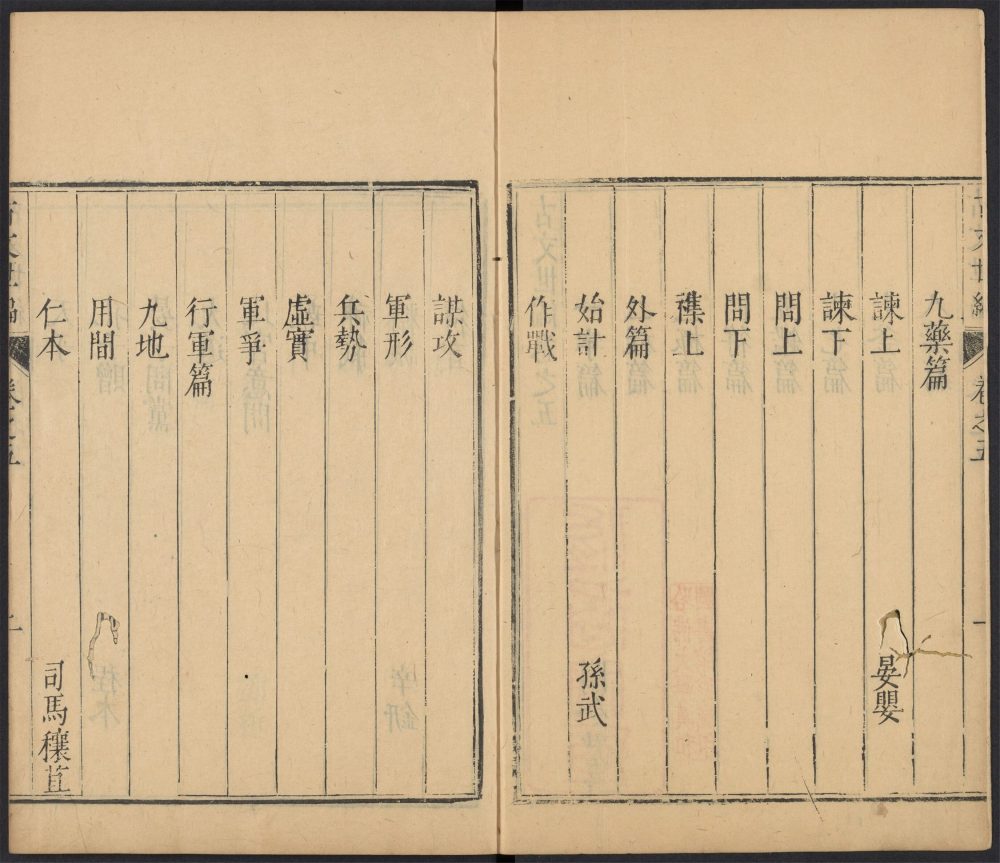 古文世編
卷之五
一
九藥篇
諫上
晏嬰
諫下
問上
問下
襍上
外篇
始計
孫武
作戰
謀攻
軍形
兵勢
虛實
軍爭
行軍篇
九地
用間
仁本
司馬穰苴
古文世編
卷之五
二